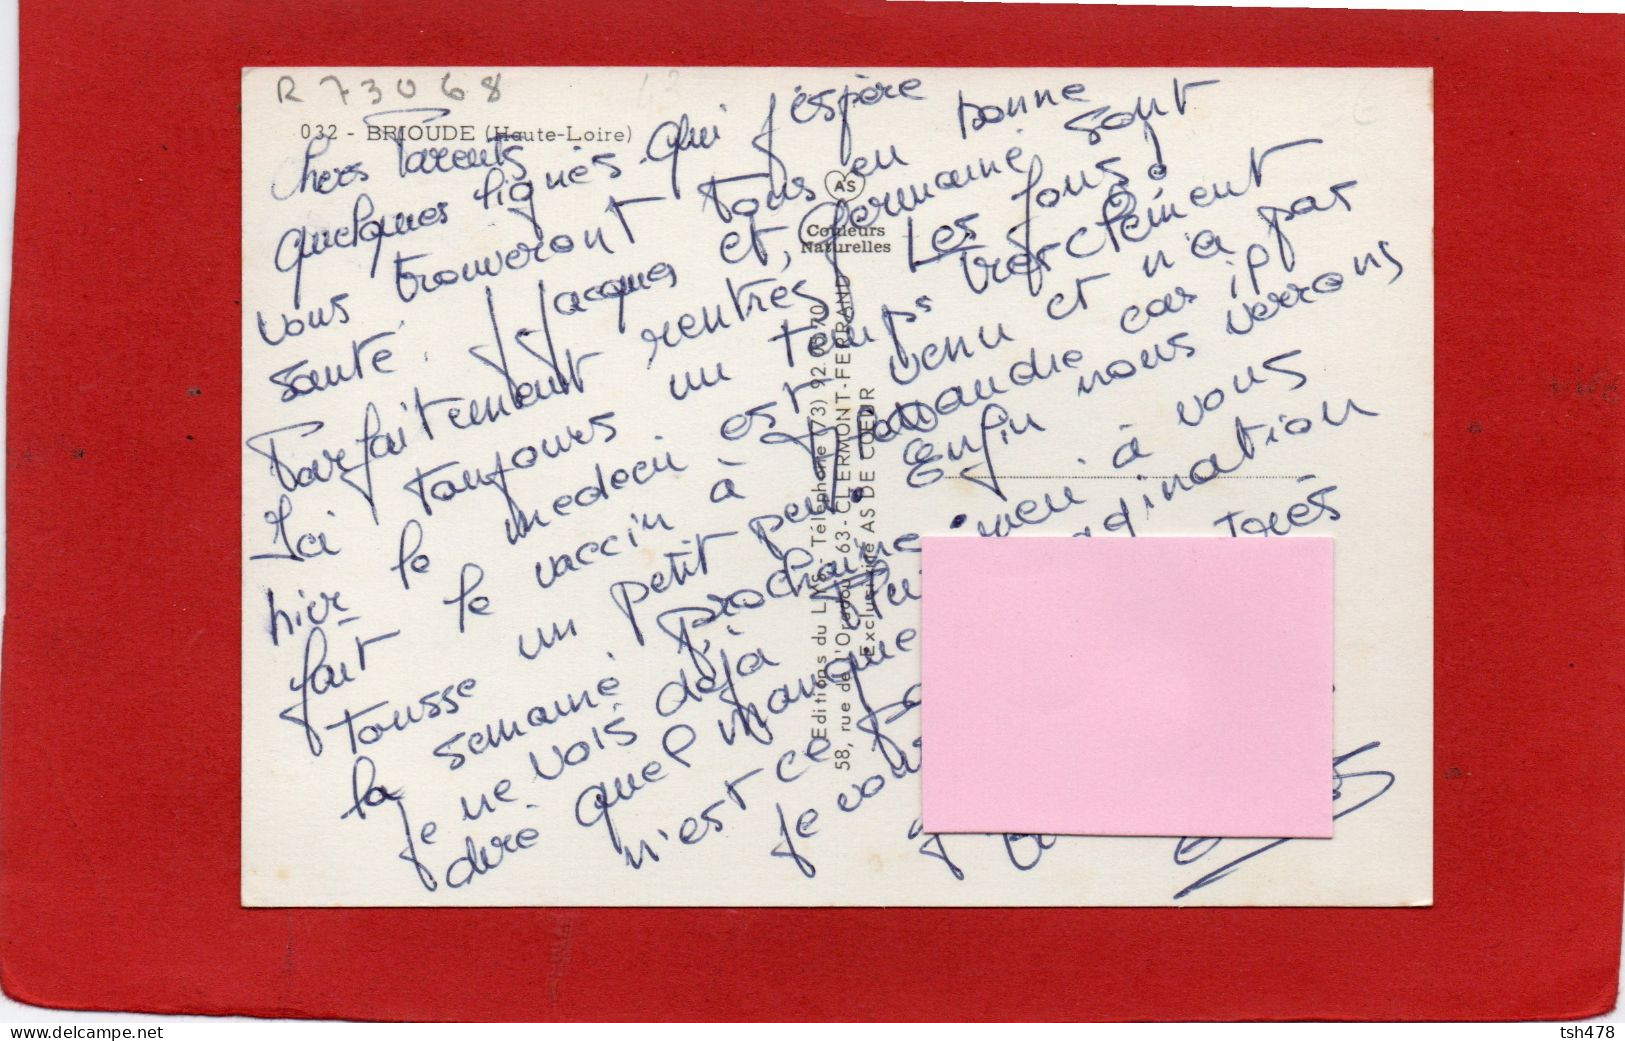 R 73068
032 - BRIOUDE (Haute-Loire)
Chers Parents
quelques lignes qui j'éspère
vous trouveront tous en bonne
santé. J. Jacques et Germaine sont
Parfaitement rentrés Les fous.
Ici toujours un temps très clément
hier le medecin est venu et n'a pas
fait le vaccin à car ip
tousse un petit peu. enfin nous verrons
la semaine prochaine à vous
je ne vois déjà Plus rien
dire quel manque d'imagination
n'est ce pas
je vous
AS
Couleurs
Naturelles
Editions du LYS - Téléphone (73) 92.05.70
58, rue de l'Oradou - 63 - CLERMONT-FERRAND
Exclusivité AS DE COEUR
www.delcampe.net
tsh478